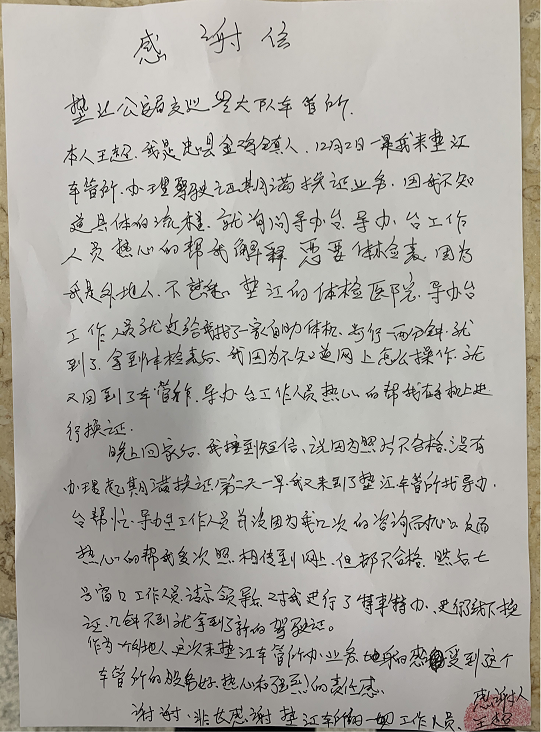 感谢信
垫江公安局交巡警大队车管所.
本人王超.我是忠县金鸡镇人.12月2日一早我来垫江
车管所.办理驾驶证期满换证业务.因我不知
道具体的流程.就询问导办台.导办台工作
人员热心的帮我解释需要体检表.因为
我是外地人.不熟悉垫江的体检医院.导办台
工作人员就又给我找了一家自助体机.步行一两分钟.就
到了.拿到体检表后.我因为不知道网上怎么操作.就
又回到了车管所.导办台工作人员热心的帮我在手机上进
行换证.
晚上回家后.我接到短信、说因为照片不合格.没有
办理起期满换证.第二天一早.我又来到了垫江车管所找导办
台帮忙.导办台工作人员并没因为我几次的咨询而 反而
热心的帮我多次照相传到网上.但都不合格.然后七
号窗口工作人员.请示领导后.对我进行了特事特办.进行线下换
证.几分钟不到就拿到了新的驾驶证。
作为一个外地人.这次来垫江车管所办业务. 的感受到这个
车管所的服务好.热心和强烈的责任感.
谢谢、非常感谢垫江车管所的一切工作人员.
感谢人
王超